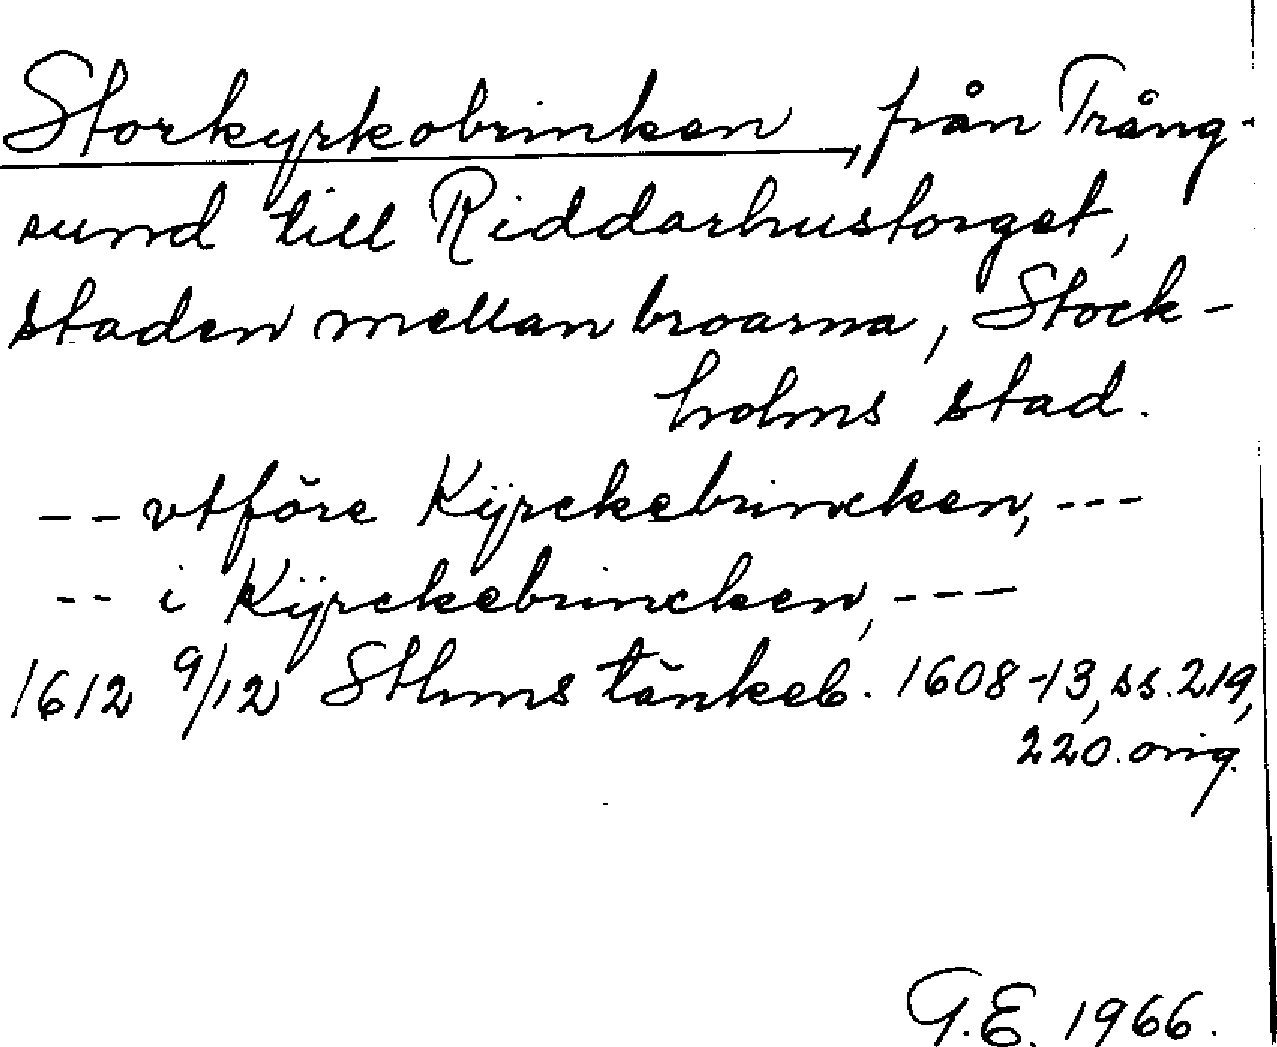 Storkyrkobrinken, från Trång-
sund till Riddarhustorget,
staden mellan broarna, Stock-
holms stad.
-- vtföre Kÿrckebrincken, ---
-- i Kÿrckebrincken, ---
1612 9/12 Sthms tänkeb. 1608-13, ss. 219,
220. orig.
G.E. 1966.